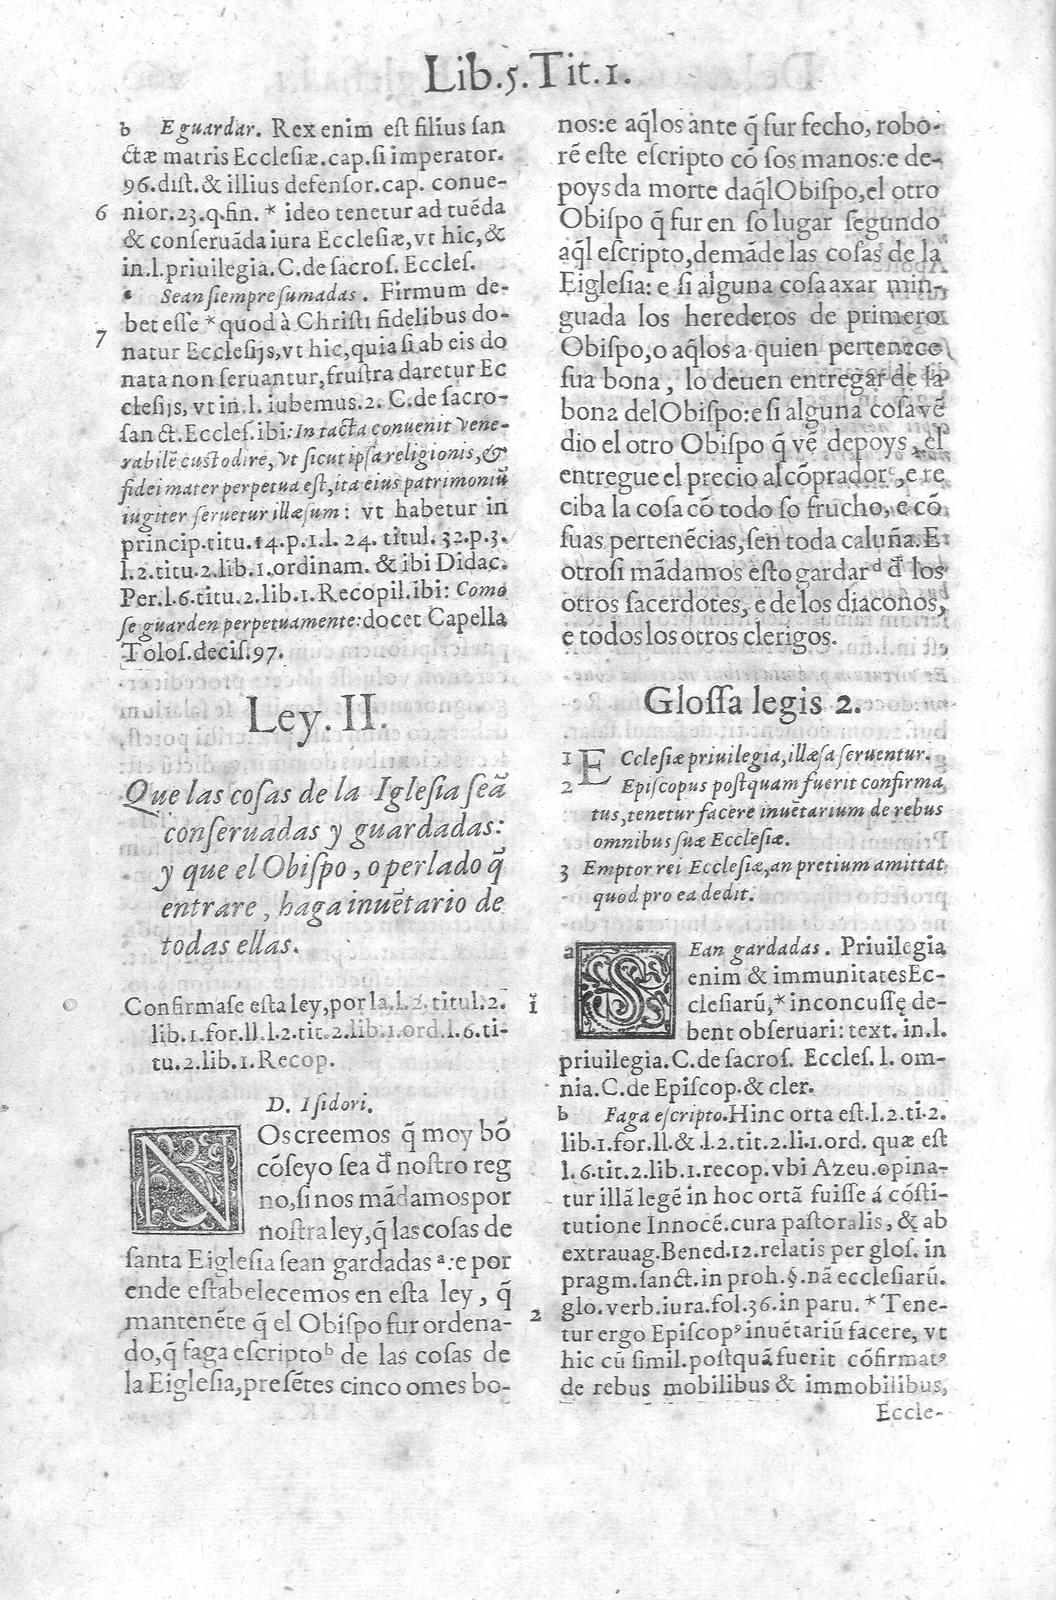 Lib.5.Tit.1.
b Eguardar. Rex enim est filius san
ctæ matris Ecclesiæ.cap.si imperator.
96.dist.& illius defensor.cap. conue-
6 nior.23.q.fin. * ideo tenetur ad tuẽda
& conseruãda iura Ecclesiæ,vt hic,&
in.l.priuilegia.C.de sacros. Eccles.
• Sean siempre sumadas. Firmum de-
7 bet esse * quod à Christi fidelibus do-
natur Ecclesijs,vt hic,quia si ab eis do
nata non seruantur,frustra daretur Ec
clesijs, vt in.l. iubemus.2. C.de sacro-
sanct.Eccles.ibi:In tacta conuenit vene-
rabilẽ custodire, vt sicut ipsa religionis,&
fidei mater perpetua est,ita eius patrimoniũ
iugiter seruetur illæsum: vt habetur in
princip.titu.14.p.1.l. 24. titul.32.p.3.
l.2.titu.2.lib.1.ordinam. & ibi Didac.
Per.l.6.titu.2.lib.1.Recopil.ibi: Como
se guarden perpetuamente: docet Capella
Tolos.decis.97.
Ley. II.
Que las cosas de la Iglesia seã
conseruadas y guardadas:
y que el Obispo, o perlado q̃
entrare, haga inuẽtario de
todas ellas.
Confirmase esta ley,por la.l.2.titul.2.
lib.1.for.ll.l.2.tit.2.lib.1.ord.l.6.ti-
tu.2.lib.1.Recop.
D. Isidori.
NOs creemos q̃ moy bõ
cõseyo sea d̃ nostro reg
no,si nos mãdamos por
nostra ley,q̃ las cosas de
santa Eiglesia sean gardadas ª:e por
ende establecemos en esta ley, q̃
mantenẽte q̃ el Obispo fur ordena-
do,q̃ faga escripto ᵇ de las cosas de
la Eiglesia,presẽtes cinco omes bo-
nos:e aq̃los ante q̃ fur fecho, robo-
rẽ este escripto cõ sos manos:e de-
poys da morte daq̃l Obispo,el otro
Obispo q̃ fur en so lugar segundo
aq̃l escripto,demãde las cosas de la
Eiglesia: e si alguna cosa axar min-
guada los herederos de primero
Obispo,o aq̃los a quien pertenece
sua bona, lo deuen entregar de la
bona del Obispo:e si alguna cosa vẽ
dio el otro Obispo q̃ vẽ depoys, el
entregue el precio al cõprador ᶜ,e re
ciba la cosa cõ todo so frucho, e cõ
suas pertenẽcias,sen toda caluña.E
otrosi mãdamos esto gardar ᵈ d̃ los
otros sacerdotes, e de los diaconos,
e todos los otros clerigos.
Glossa legis 2.
1 ECclesiæ priuilegia,illæsa seruentur.
2 Episcopus postquam fuerit confirma
tus,tenetur facere inuẽtarium de rebus
omnibus suæ Ecclesiæ.
3 Emptor rei Ecclesiæ,an pretium amittat
quod pro ea dedit.
a SEan gardadas. Priuilegia
enim & immunitates Ec-
1 clesiarũ,* inconcussę de-
bent obseruari: text. in.l.
priuilegia.C.de sacros. Eccles. l. om-
nia.C.de Episcop.& cler.
b Faga escripto. Hinc orta est.l.2.ti.2.
lib.1.for.ll.& .l.2.tit.2.li.1.ord. quæ est
l.6.tit.2.lib.1.recop.vbi Azeu.opina-
tur illã legẽ in hoc ortã fuisse á cõsti-
tutione Innocẽ.cura pastoralis, & ab
extrauag.Bened.12.relatis per glos. in
pragm.sanct.in proh.§.nã ecclesiarũ.
2 glo.verb.iura.fol.36.in paru. * Tene-
tur ergo Episcopꝰ inuẽtariũ facere, vt
hic cũ simil.postquã fuerit cõfirmatꝰ
de rebus mobilibus & immobilibus,
Eccle-